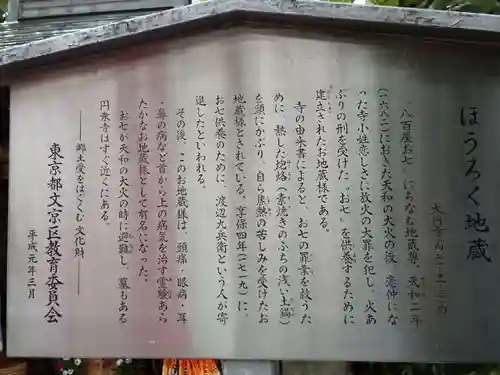 ほうろく地蔵
大円寺向丘一-一一-三内
八百屋お七 にちなむ地蔵尊。天和二年
(一六八二)におきた天和の大火の後、恋仲にな
った寺小姓恋しさに放火の大罪を犯し、火あ
ぶりの刑を受けた。お七 を供養するために
建立されたお地蔵様である。
寺の由来書によると、お七の罪業を救うた
めに、熱した炮烙(素焼きのふちの浅い土鍋)
を頭にかぶり、自ら焦熱の苦しみを受けたお
地蔵様とされている。享保四年(一七一九)に、
お七供養のために、渡辺九兵衛という人が寄
進したといわれる。
その後、このお地蔵様は、頭痛・眼病・耳
・鼻の病など首から上の病気を治す霊験あら
たかなお地蔵様として有名になった。
お七が天和の大火の時に避難し、墓もある
円乗寺はすぐ近くにある。
――郷土愛をはぐくむ文化財――
東京都文京区教育委員会
平成元年三月